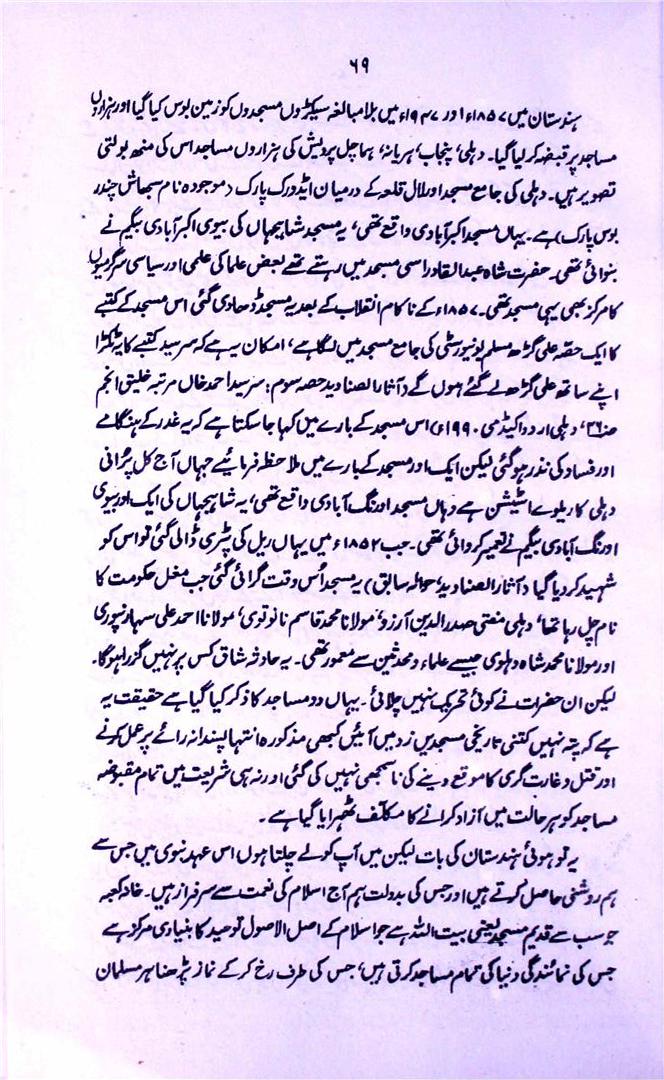 ۶۹
ہندستان میں ۱۸۵۷ء اور ۱۹۴۷ء میں بلا مبالغہ سیکڑوں مسجدوں کو زمین بوس کیا گیا اور ہزاروں
مساجد پر قبضہ کر لیا گیا۔ دہلی، پنجاب، ہریانہ، ہماچل پردیش کی ہزاروں مساجد اس کی منھ بولتی
تصویر ہیں۔ دہلی کی جامع مسجد اور لال قلعہ کے درمیان ایڈورک پارک (موجودہ نام سبھاش چندر
بوس پارک) ہے۔ یہاں مسجد اکبرآبادی واقع تھی، یہ مسجد شاہجہاں کی بیوی اکبرآبادی بیگم نے
بنوائی تھی۔ حضرت شاہ عبدالقادر اسی مسجد میں رہتے تھے بعض علما کی علمی اور سیاسی سرگرمیوں
کا مرکز بھی یہی مسجد تھی۔ ۱۸۵۷ء کے ناکام انقلاب کے بعد یہ مسجد ڈھادی گئی اس مسجد کے کتبے
کا ایک حصہ علی گڑھ مسلم یونیورسٹی کی جامع مسجد میں لگا ہے، امکان یہ ہے کہ سرسید کتبے کا یہ ٹکڑا
اپنے ساتھ علی گڑھ لے گئے ہوں گے (آثار الصنادید حصہ سوم: سرسید احمد خاں مرتبہ خلیق انجم
صـ۳۶، دہلی اردو اکیڈمی ۱۹۹۰ء) اس مسجد کے بارے میں کہا جا سکتا ہے کہ یہ غدر کے ہنگامے
اور فساد کی نذر ہو گئی لیکن ایک اور مسجد کے بارے میں ملاحظہ فرمائیے جہاں آج کل پُرانی
دہلی کا ریلوے اسٹیشن ہے وہاں مسجد اورنگ آبادی واقع تھی، یہ شاہیجہاں کی ایک اور بیوی
اورنگ آبادی بیگم نے تعمیر کروائی تھی۔ جب ۱۸۵۲ء میں یہاں ریل کی پٹری ڈالی گئی تو اس کو
شہید کر دیا گیا (آثار الصنادید، حوالہ سابق) یہ مسجد اُس وقت گرائی گئی جب مغل حکومت کا
نام چل رہا تھا، دہلی مفتی صدر الدین آرزو، مولانا محمد قاسم نانوتوی، مولانا احمد علی سہارنپوری
اور مولانا محمد شاہ دہلوی جیسے علماء و محدثین سے معمور تھی۔ یہ حادثہ شاق کس پر نہیں گزرا ہو گا۔
لیکن ان حضرات نے کوئی تحریک نہیں چلائی۔ یہاں دو مساجد کا ذکر کیا گیا ہے حقیقت یہ
ہے کہ پتہ نہیں کتنی تاریخی مسجدیں زد میں آئیں کبھی مذکورہ انتہا پسندانہ رائے پر عمل کرنے
اور قتل و غارت گری کا موقع دینے کی ناسمجھی نہیں کی گئی اور نہ ہی شریعت میں تمام مقبوضہ
مساجد کو ہر حالت میں آزاد کرانے کا مکلّف ٹھہرایا گیا ہے۔
یہ تو ہوئی ہندستان کی بات لیکن میں آپ کو لے چلتا ہوں اس عہد نبوی میں جس سے
ہم روشنی حاصل کرتے ہیں اور جس کی بدولت ہم آج اسلام کی نعمت سے سرفراز ہیں۔ خانہ کعبہ
جو سب سے قدیم مسجد یعنی بیت اللہ ہے جو اسلام کے اصل الاصول توحید کا بنیادی مرکز ہے
جس کی نمائندگی دنیا کی تمام مساجد کرتی ہیں، جس کی طرف رخ کر کے نماز پڑھنا ہر مسلمان